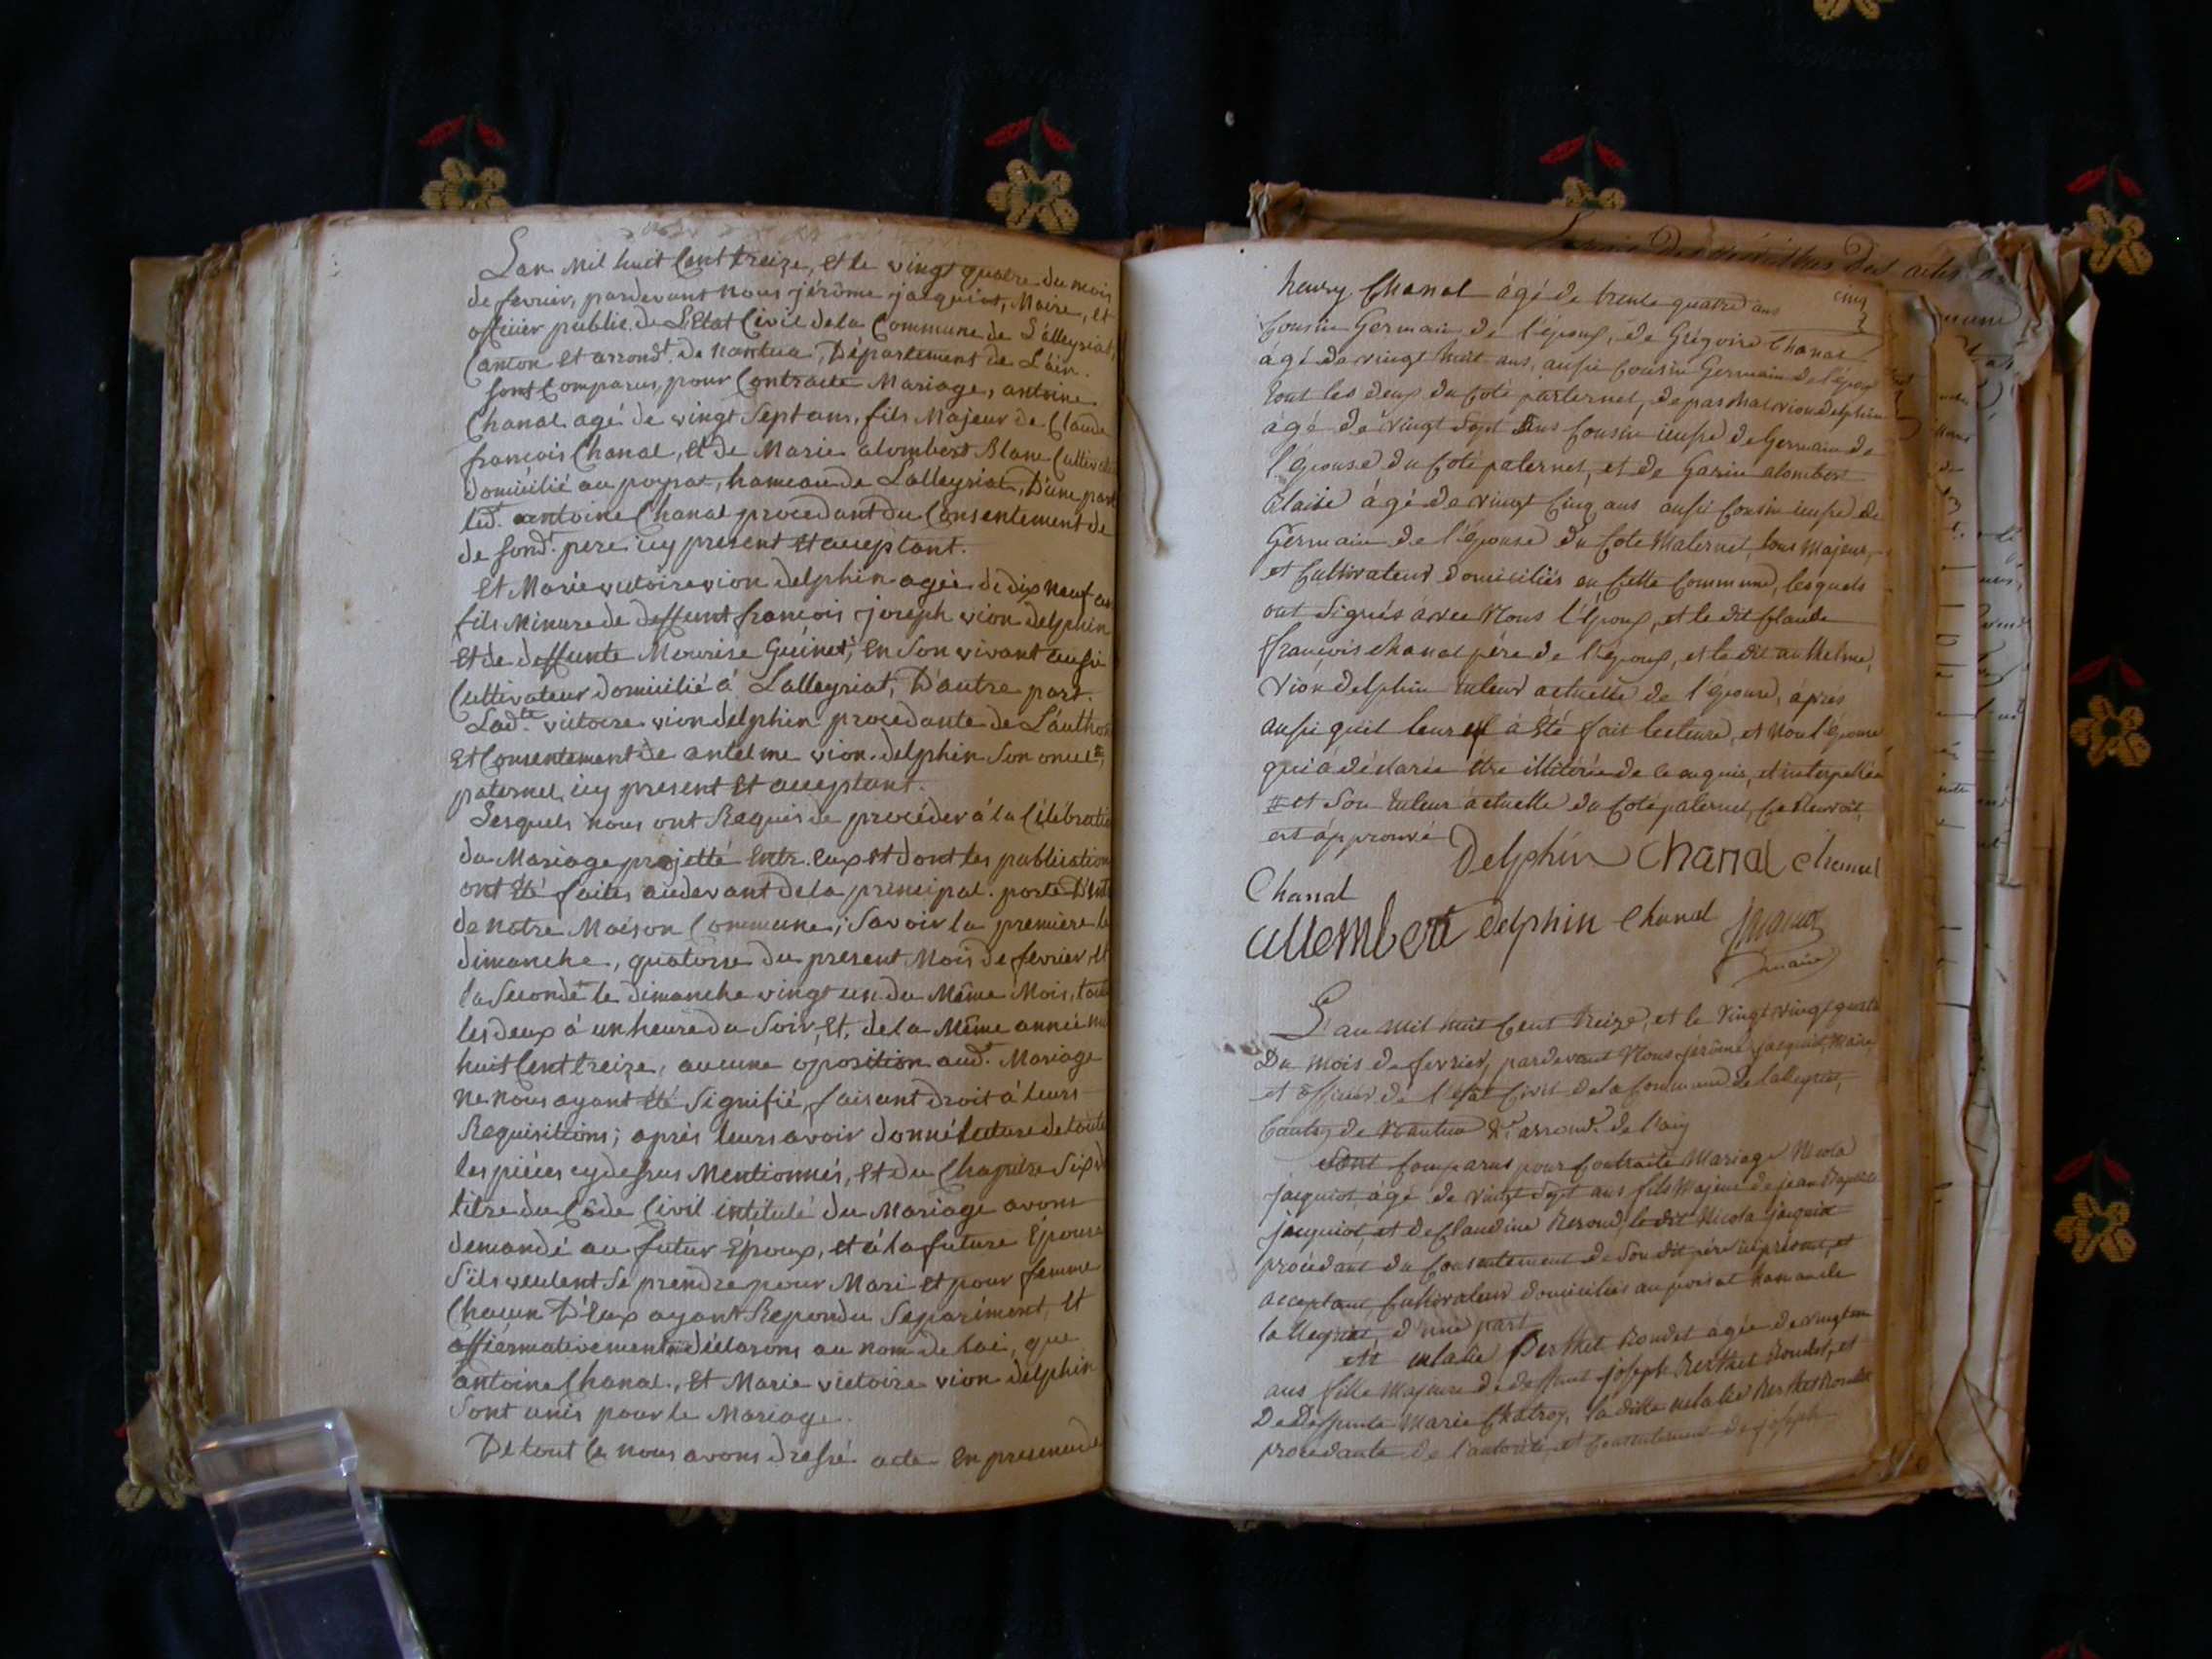 Lan Mil huit Cent treize, et le vingt quatre du mois
de fevrier, pardevant Nous jérôme jacquiot, Maire, et
officier public de L'Etat Civil dela Commune de Lalleyriat,
Canton et arrondt. de Nantua, Département de L'áin.
sont Comparus, pour Contracte Mariage, antoine
Chanal agé de vingt Sept ans, fils Majeur de Claude
francois Chanal, et de Marie alombert Blanc Cultivat
domicilié au poyzat, hameau de Lalleyriat, D'une part
led. antoine Chanal procedant du Consentement de
de sond. pere icy present et acceptant.
Et Marie victoire vion delphin agée de dix neuf an
fils Minure de deffunt francois joseph vion delphin
et de deffunte Meurise Guinet, en Son vivant aussi
Cultivateur domicilié á Lalleyriat, D'autre part.
Ladte. victoire vion delphin procedante de L'autho
Et Consentement de antelme vion delphin Son oncle
paternel icy present et acceptant.
Lesquels nous ont Requis de procéder á la Célébratio
du Mariage projetté Entr. Eux et dont les publication
ont été faites audevant dela principal. porte D'ent
de notre Maison Commune; Savoir la premiere le
dimanche, quatorse du present Mois de fevrier, et
la Seconde le dimanche vingt un du Même Mois, tout
les deux á un heure du Soir, Et, dela Même année mil
huit Cent treize, aucune oposition aud. Mariage
ne nous ayant été Signifié, faisant droit á leurs
Requisitions; aprés leurs avoir donné lecture de toute
les piéces cy dessus Mentionnés, et du Chapitre Six d
titre du Côde Civil intitulé du Mariage avons
demandé au futur Époux, et á la future Épouse
S'ils veulent Se prendre pour Mari et pour femme
Chacun D'Eux ayant Repondu Separément, Et
affiérmativement déclarons au nom de loi, que
antoine Chanal, Et Marie victoire vion delphin
Sont unis pour le Mariage.
De tout Ce nous avons dressé acte En presence de
henry Chanal âgé de trente quatre ans
cinq
Cousin Germain de l'époux, de Grégoire Chanal
âgé de vingt huit ans, aussi Cousin Germain de l'époux
tout les deux du Coté parternel, de vion delphin
âgé de vingt Sept ans Cousin de Germain de
l'épouse du Coté paternel, et de alombert
âgé de vingt Cinq ans aussi Cousin de
Germain de l'épouse du Coté Maternel, tous Majeur,
et Cultivateur domiciliés en Cette Commune, lesquels
ont Signés avec Nous l'époux, et le dit Claude
françois chanal pére de l'époux, et le dit anthelme
Vion delphin tuteur actuelle de l'épouse, áprés
aussi quil leur á été fait lecteure, et Non l'épouse
qui á déclarée étre illiterée de ce enquis, et interpellée
et Son tuteur áctuelle du Coté paternel, Ce Renvoit
est ápprouvé Delphin Chanal Chanal
Chanal
allembert delphin Chanal jacquiot
maire
L'an mil huit Cent treize, et le Vingt vingt quatre
Du mois de fevrier, pardevant Nous jérôme jacquiot, Maire
et officier de l'etat Civil dela Commune de lalleyriat,
Canton de Nantua arrond. de l'ain
Sont Comparus pour Contracte Mariage Nicola
jacquiot, âgé de vingt Sept ans fils Majeur de jean Baptiste
jacquiot, et de Claudine, le dit Nicola jacquiot
procédant du Consentement de Son dit pére présent, et
acceptant Cultivateur domiciliés au poisat hamaude
lalleyriat, d'une part
et Berthet Bondet âgée de vingt
ans fille Majeure de deffunt joseph Berthet Bondet, et
De deffunte Marie, la ditte Berthet Bondet
procedante de l'autorité, et Consentement de joseph